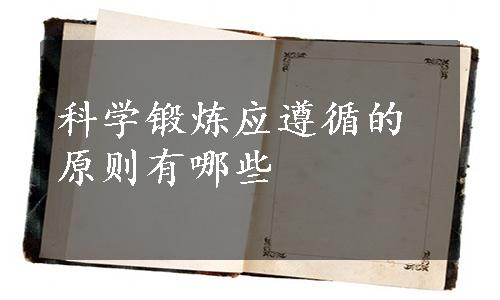 科学锻炼应遵循的
原则有哪些